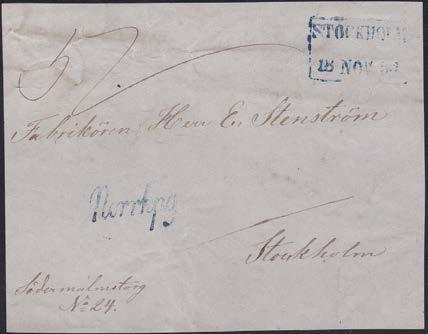 57
STOCKHOLM
18 NOV
Fabrikören Herr E. Stenström
Norrkpg
Stockholm
Södermalmstorg
No 24.